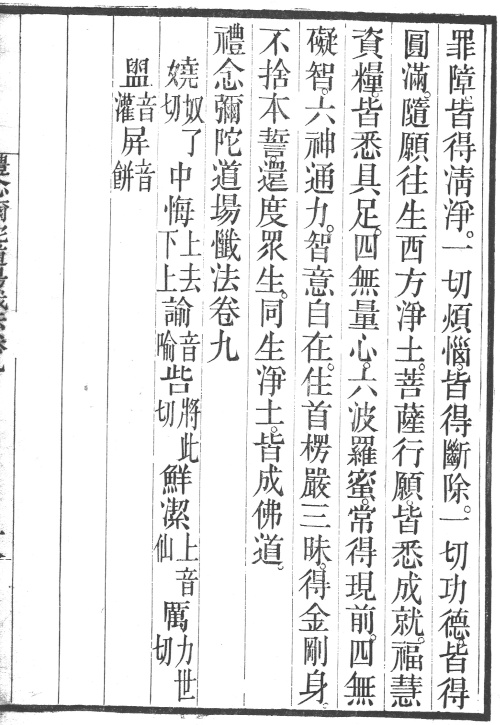 罪障皆得清淨。一切煩惱。皆得斷除。一切功德。皆得
圓滿。隨願往生西方淨土。菩薩行願。皆悉成就。福慧
資糧。皆悉具足。四無量心。六波羅蜜。常得現前。四無
礙智。六神通力。智意自在。住首楞嚴三昧。得金剛身。
不捨本誓。還度眾生。同生淨土。皆成佛道。
禮念彌陀道場懺法卷九
嬈奴了切中悔上去下上諭音喻呰將此切鮮潔上音仙厲力世切
盥音灌屏音餅
禮念彌陀道場懺法卷九